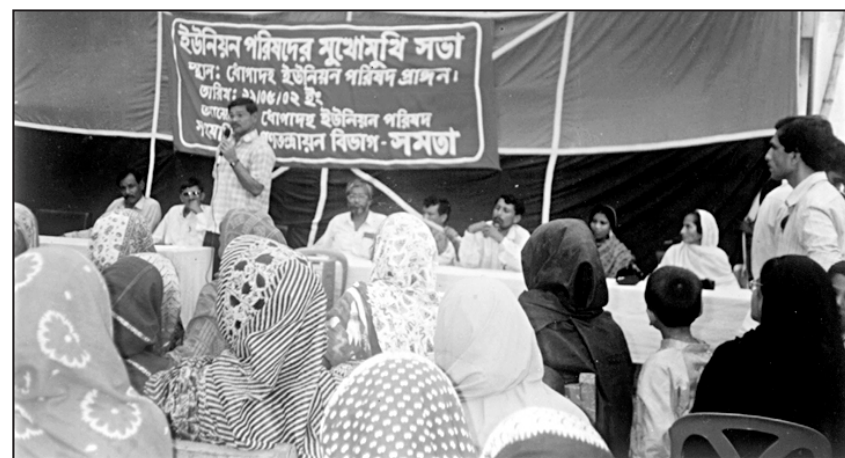 ইউনিয়ন পরিষদের মুখোমুখি সভা
স্থান: ধোপাদহ ইউনিয়ন পরিষদ প্রাঙ্গন।
তারিখ: ২১/০৫/০২ ইং
ধোপাদহ ইউনিয়ন পরিষদ
বিভাগ - সমতা